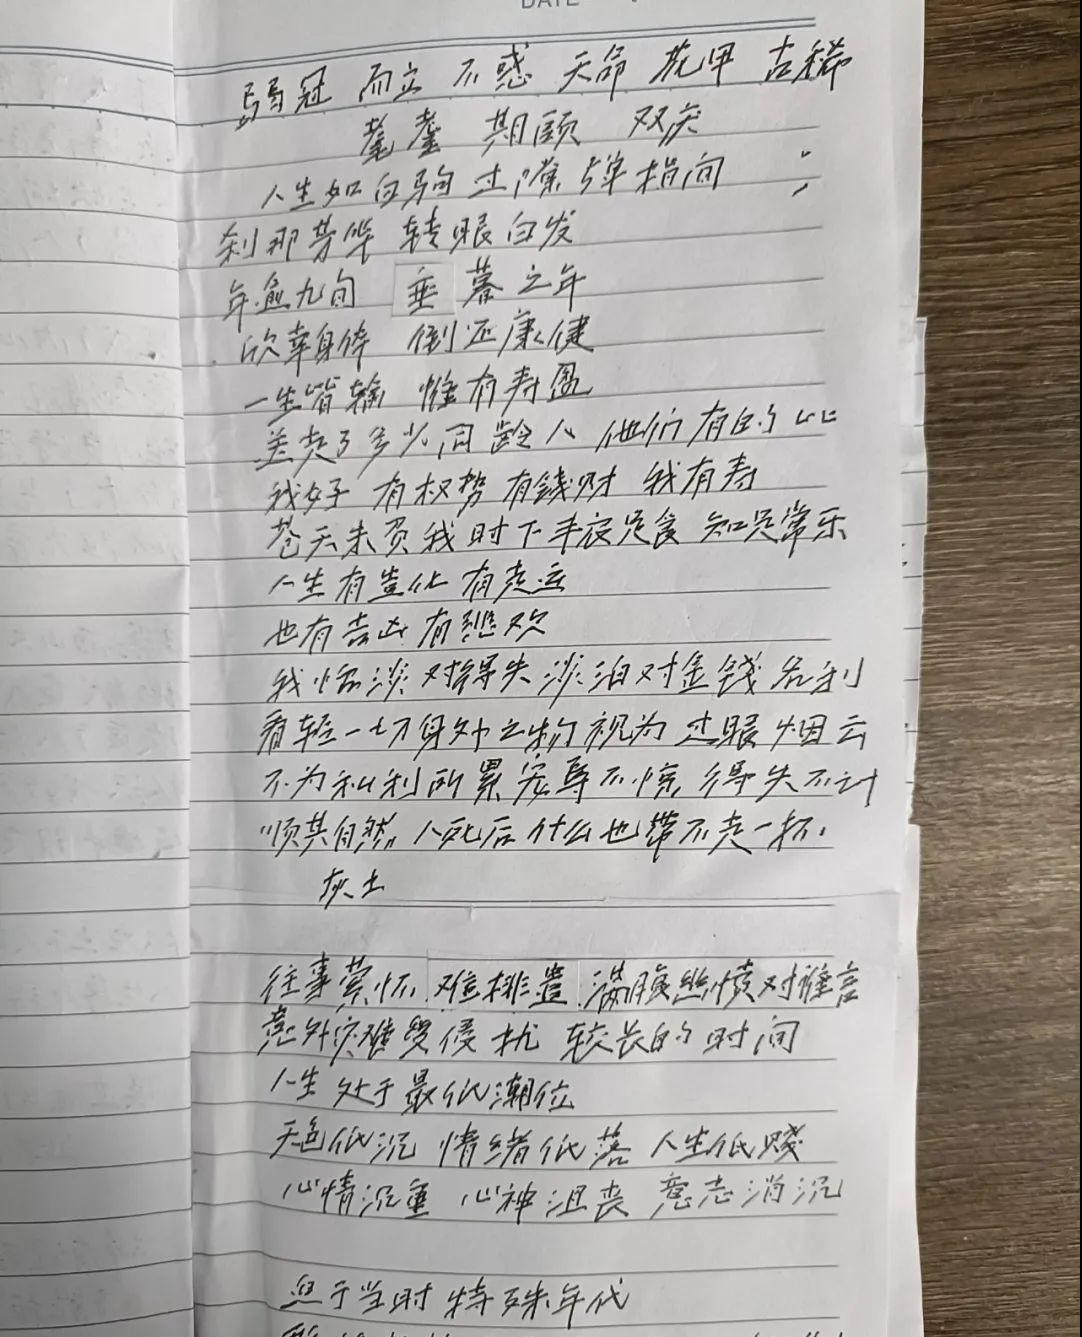 DATE
弱冠 而立 不惑 天命 花甲 古稀
耄耋 期颐 双庆
人生如白驹过隙 弹指间
刹那芳华 转眼白发
年逾九旬 垂暮之年
欣幸身体 倒还康健
一生皆输 惟有寿盈
差走了多少同龄人 他们有的比
我好 有权势 有錢财 我有寿
苍天未负我 时下丰衣足食 知足常乐
人生有造化 有走运
也有吉凶 有悲欢
我恬淡对得失 淡泊对金钱名利
看轻一切身外之物 视为过眼烟云
不为私利所累 宠辱不惊 得失不计
顺其自然, 人死后什么也带不走一杯
灰土
往事萦怀 难排遣 满腹愁愤对谁言
意外灾难受侵扰 较长的时间
人生处于最低潮位
天色低沉 情绪低落 人生低贱
心情沉重 心神沮丧 意志消沉
鱼于当时特殊年代